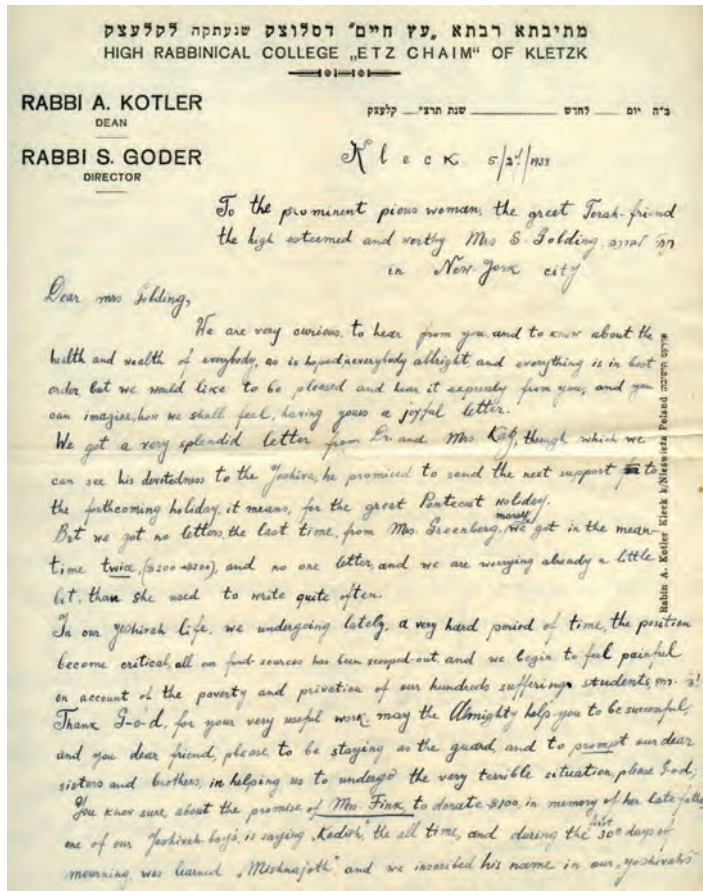 מתיבתא רבתא „עץ חיים" דסלוצק שנעתקה לקלעצק
HIGH RABBINICAL COLLEGE „ETZ CHAIM" OF KLETZK
RABBI A. KOTLER
DEAN
RABBI S. GODER
DIRECTOR
ב"ה יום ____ לחדש ____ שנת תרצ"__ קלעצק
Kleck 5/2d/1938
To the prominent pious woman, the great Torah-friend
the high esteemed and worthy Mrs S. Golding,
in New-York city
Dear mrs Golding,
We are very curious, to hear from you and to know about the
health and wealth of everybody, as is hoped, everybody allright and everything is in best
order but we would like to be pleased and hear it expressly from you, and you
can imagine, how we shall feel, having yours a joyful letter.
We got a very splendid letter from Dr. and Mrs. Katz, though which we
can see his devotedness to the Yoshiva, he promised to send the next support to
the forthcoming holiday, it means, for the great Pentecost holiday.
But we got no letters, the last time, from Mrs. Greenberg, money we got in the mean-
time twice, ($200 $200), and no one letter, and we are worrying already a little
bit, than she used to write quite often.
In our Yoshivah life, we undergoing lately, a very hard period of time, the position
become critical, all our fund-sources has been scooped-out, and we begin to feel painful
on account of the poverty and privation of our hundreds suffering students,
Thank G-o-d, for your very useful work, may the Almighty help you to be successful,
and you dear friend, please to be staying as the guard, and to prompt our dear
sisters and brothers, in helping us to undergo the very terrible situation, please God;
You know sure, about the promise of Mrs. Fink, to donate $100, in memory of her late father
one of our Yoshivah-boys, is saying „Kadish", the all time, and during the first 30th days of
mourning, was learned „Mishnajoth" and we inscribed his name in our „yoshivah's"
Rabin A. Kotler Kleck k/Nieświeża Poland